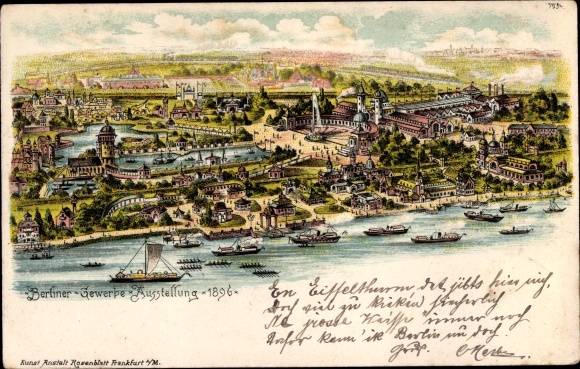 753.
Berliner - Gewerbe - Ausstellung - 1896 -
En Eiffelthurm det jibts hier nich,
Doch viel zu kieken sicherlich
Ne grosse Weisse immer noch
Dafor kenn ik Berlin nu doch
Gruß
Kunst Anstalt Rosenblatt Frankfurt a/M.